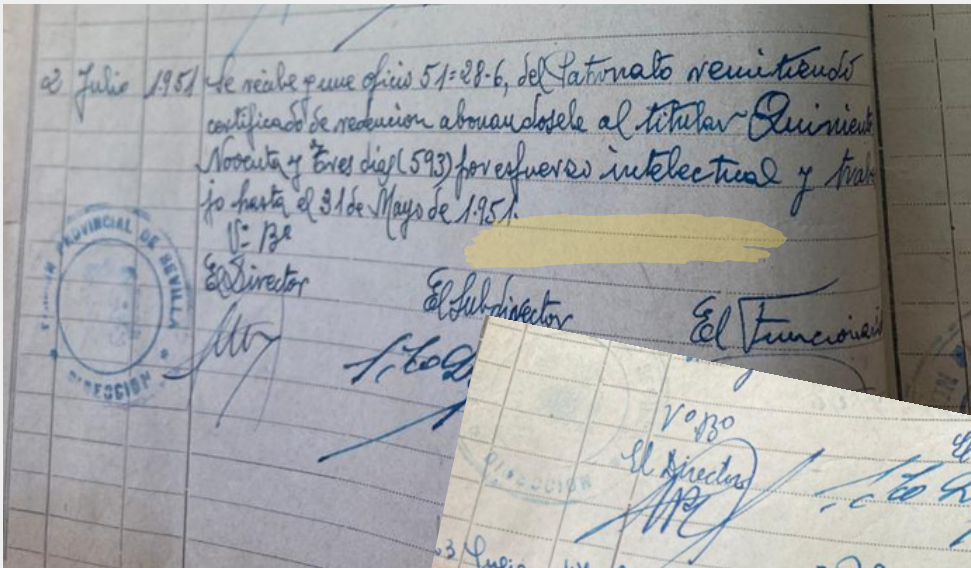 2 Julio 1951 Se recibe y une oficio 51=28-6, del Patronato remitiendo
certificado de redencion abonandosele al titular Quiniento
Noventa y Tres dias (593) por esfuerzo intelectual y traba
jo hasta el 31 de Mayo de 1.951.
Vº Bº
El Director
El Subdirector
El Funcionario
PROVINCIAL DE SEVILLA
DIRECCION
Vº Bº
El Director
DIRECCION
3 Julio